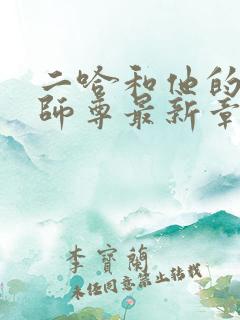 二哈和他的
師尊最新章
李寶蘭
未经同意禁止转载